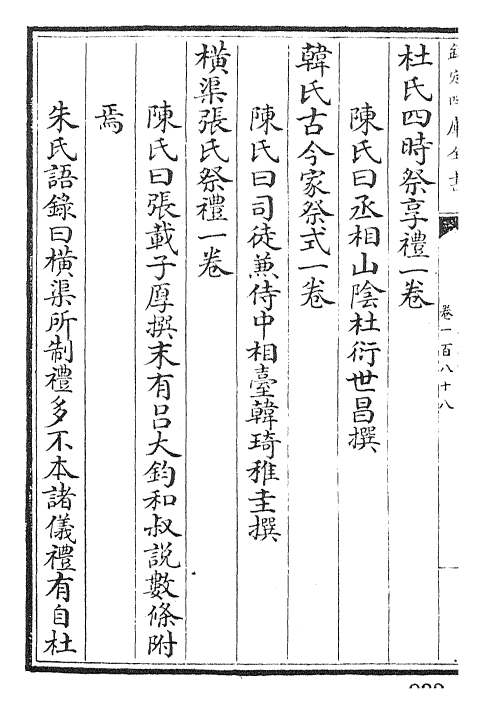 欽定四庫全書
卷一百八十八
杜氏四時祭享禮一卷
陳氏曰丞相山陰杜衍世昌撰
韓氏古今家祭式一卷
陳氏曰司徒兼侍中相臺韓琦稚圭撰
橫渠張氏祭禮一卷
陳氏曰張載子厚撰末有呂大鈞和叔說數條附
焉
朱氏語錄曰橫渠所制禮多不本諸儀禮有自杜